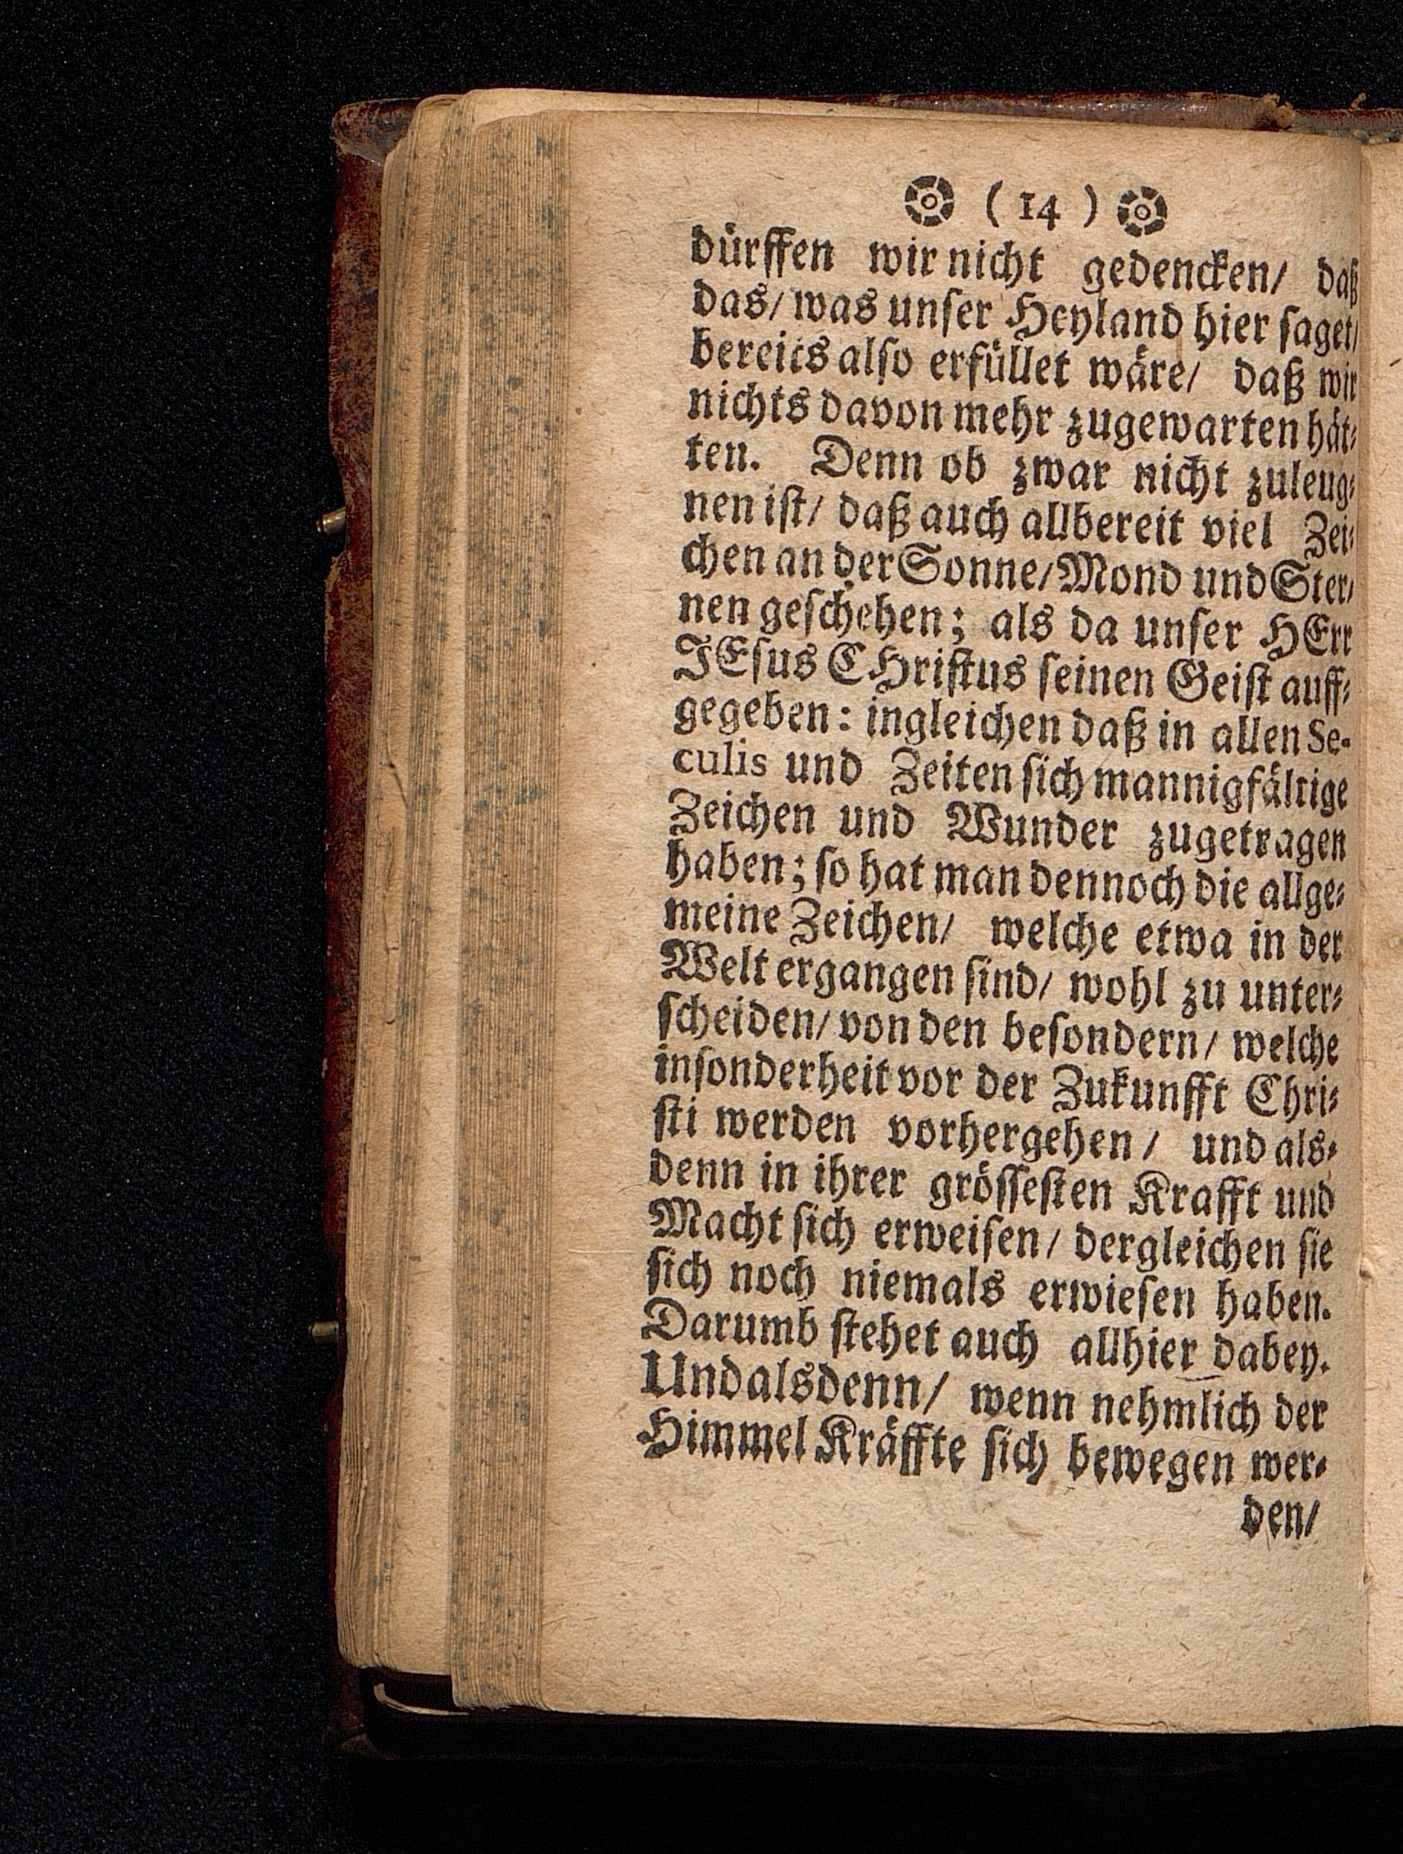 ( 14 )
dürffen wir nicht gedencken/ daß
das/ was unser Heyland hier saget/
bereits also erfüllet wäre/ daß wir
nichts davon mehr zugewarten hät-
ten. Denn ob zwar nicht zuleug-
nen ist/ daß auch allbereit viel Zei-
chen an der Sonne/ Mond und Ster-
nen geschehen; als da unser HErr
JEsus CHristus seinen Geist auff-
gegeben: ingleichen daß in allen Se-
culis und Zeiten sich mannigfältige
Zeichen und Wunder zugetragen
haben; so hat man dennoch die allge-
meine Zeichen/ welche etwa in der
Welt ergangen sind/ wohl zu unter-
scheiden/ von den besondern/ welche
insonderheit vor der Zukunfft Chri-
sti werden vorhergehen/ und als-
denn in ihrer grössesten Krafft und
Macht sich erweisen/ dergleichen sie
sich noch niemals erwiesen haben.
Darumb stehet auch allhier dabey.
Und alsdenn/ wenn nehmlich der
Himmel Kräffte sich bewegen wer-
den/